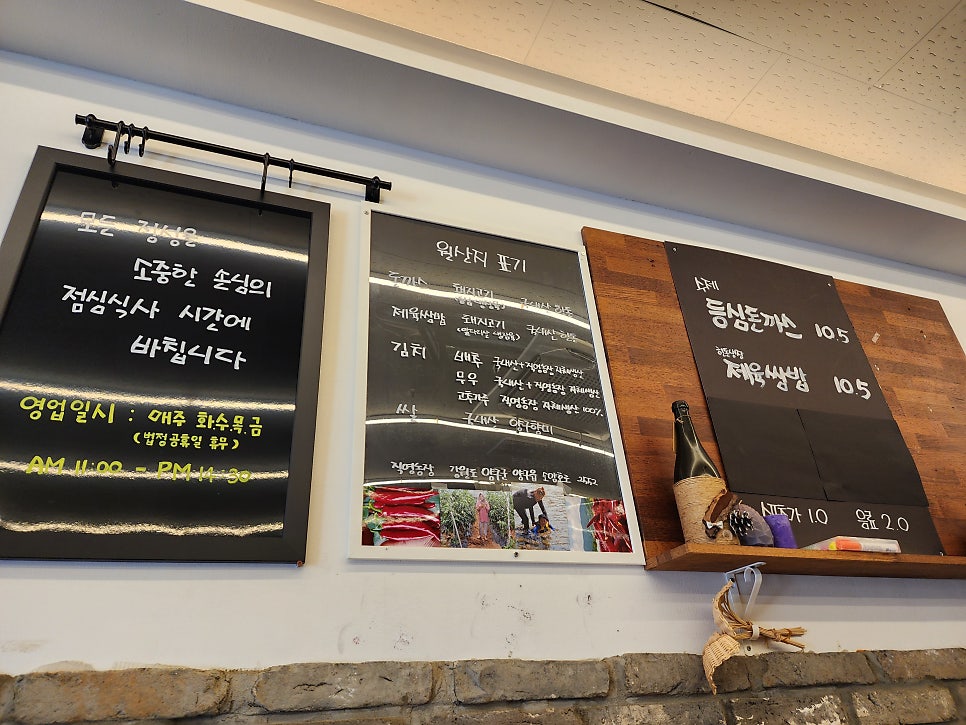 모든 정성을
소중한 손님의
점심식사 시간에
바칩니다
영업일시 : 매주 화수목금
(법정공휴일 휴무)
AM 11:00 - PM 14:30
원산지 표기
돈까스 돼지고기 국내산 한돈
제육쌈밥 돼지고기 국내산 한돈
김치 배추 국내산+직영농장 자체생산
무우 국내산+직영농장 자체생산
고추가루 직영농장 자체생산 100%
쌀 국내산
직영농장 강원도 양구군 양구읍 2552
수제
등심돈까스 10.5
제육쌈밥 10.5
1.0 음료 2.0